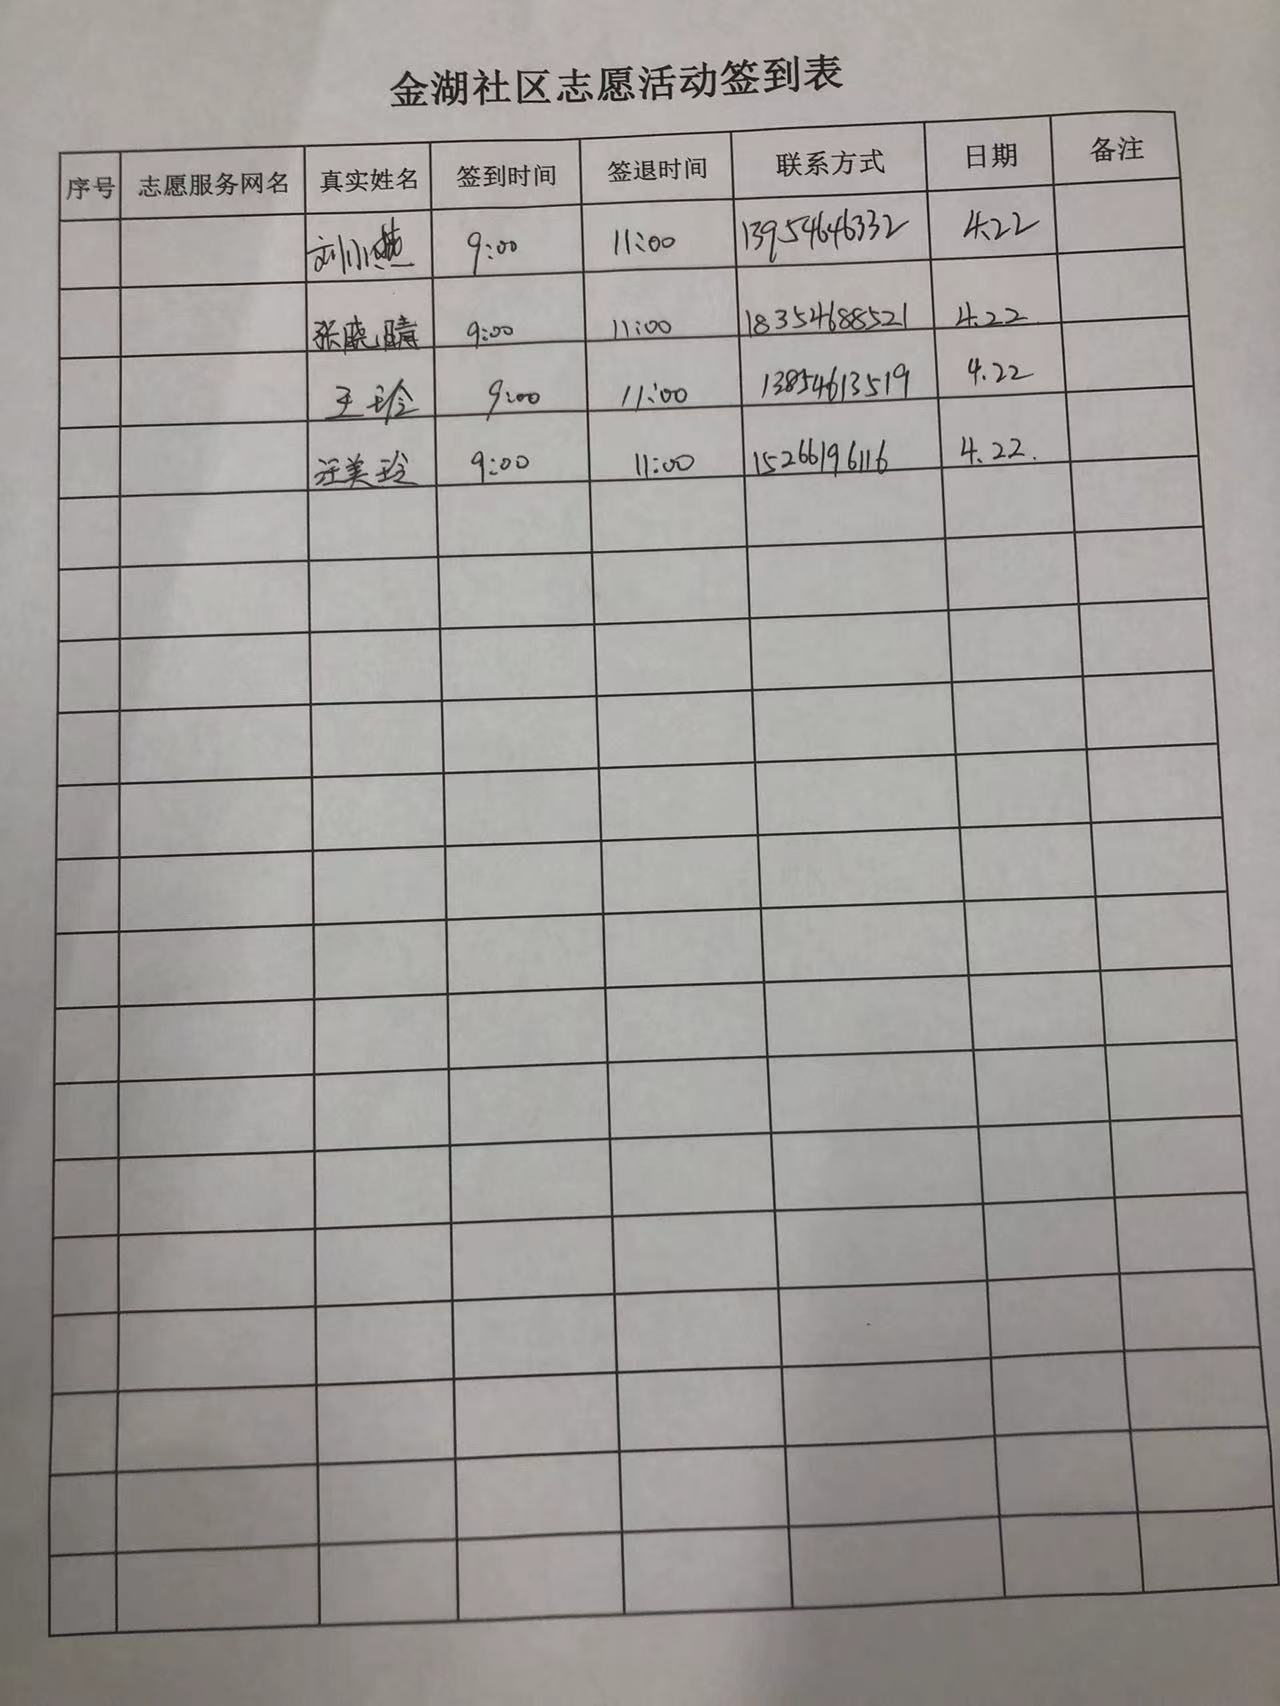 金湖社区志愿活动签到表
序号 志愿服务网名 真实姓名 签到时间 签退时间 联系方式 日期 备注
刘小燕 9:00 11:00 13954646332 4.22
张晓晴 9:00 11:00 18354688521 4.22
王玲 9:00 11:00 13854613519 4.22
汪美玲 9:00 11:00 15266196116 4.22.